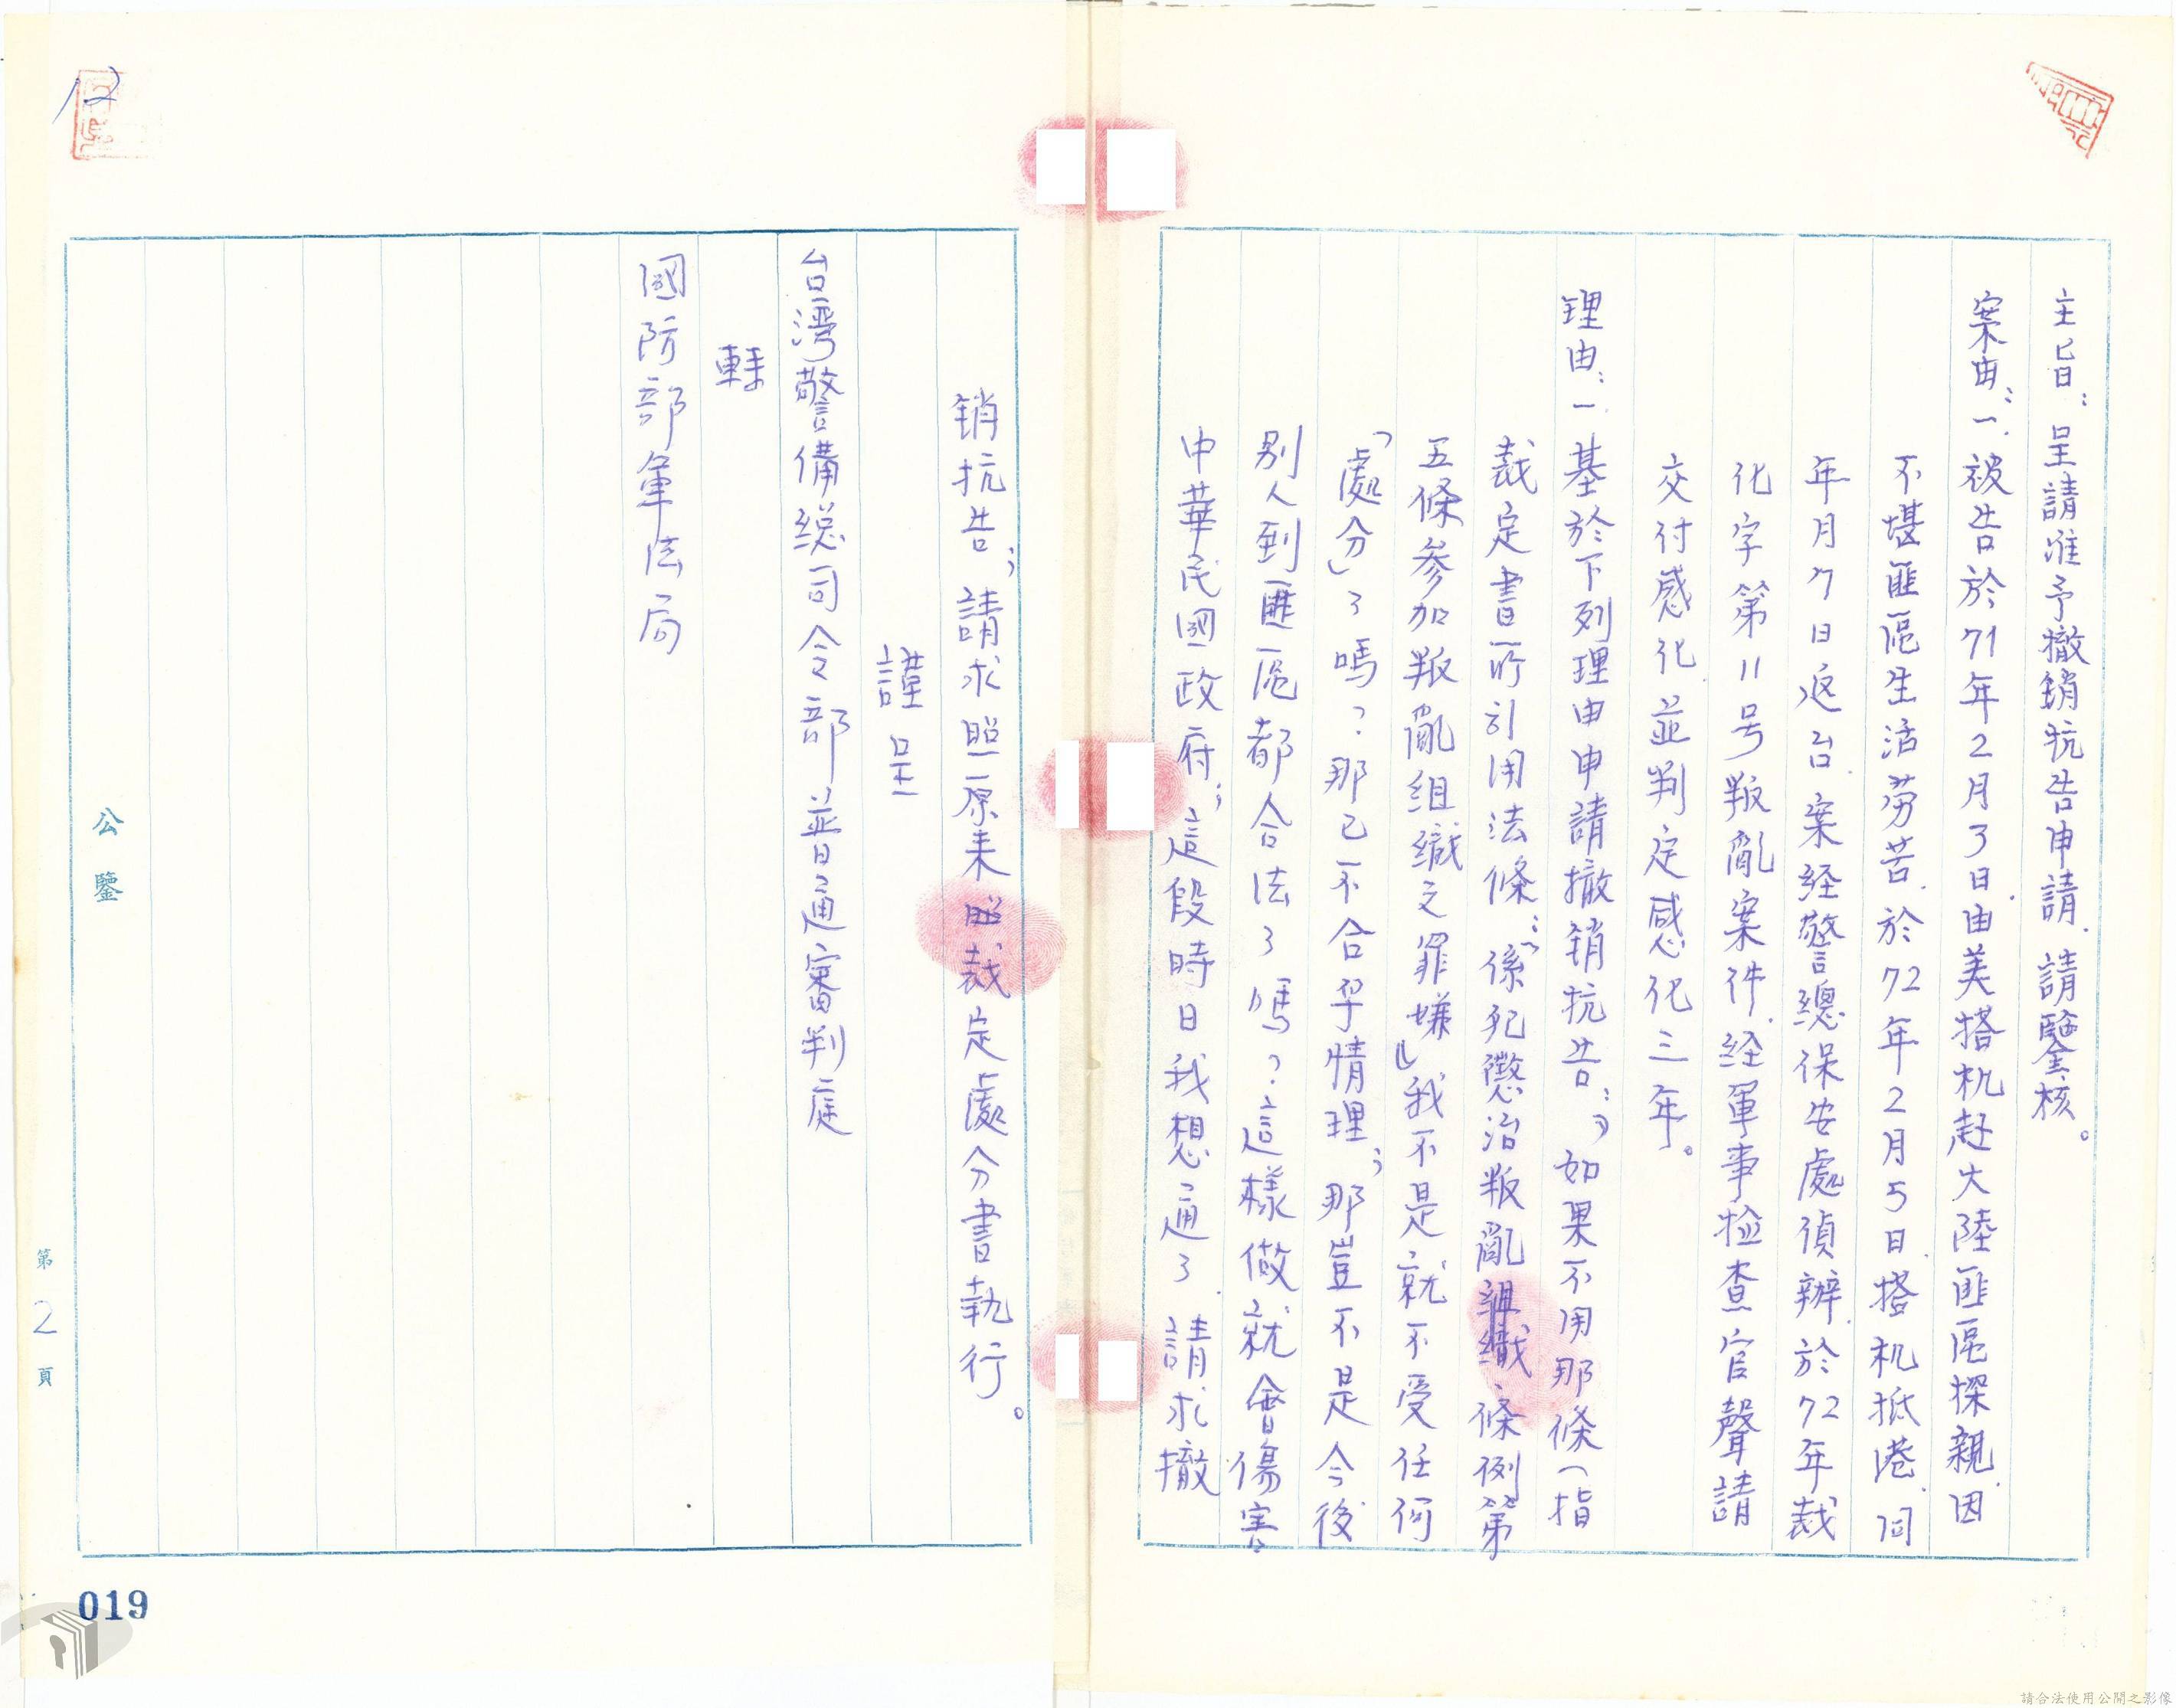 主旨：呈請准予撤銷抗告申請．請鑒核。
案由：一．被告於71年2月3日．由美搭机赴大陸匪區探親．因
不堪匪區生活劳苦．於72年2月5日．搭机抵港．同
年月7日返台．案経警總保安處偵辦．於72年裁
化字第11号叛亂案件．経軍事检查官聲請
交付感化並判定感化三年。
理由：一．基於下列理由申請撤銷抗告：，如果不用那條（指
裁定書所引用法條：“係犯懲治叛亂組織條例第
五條参加叛亂組織之罪嫌」我不是就不受任何
「處分」了嗎？那已不合乎情理；那豈不是今後
别人到匪區都合法了嗎？這樣做就會傷害
中華民國政府；這段時日我想通了．請求撤
销抗告；請求照原来照裁定處分書執行。
謹呈
台灣警備総司令部並普通審判庭
轉
國防部軍法局
公鑒
第2頁
12
019
請合法使用公開之影像